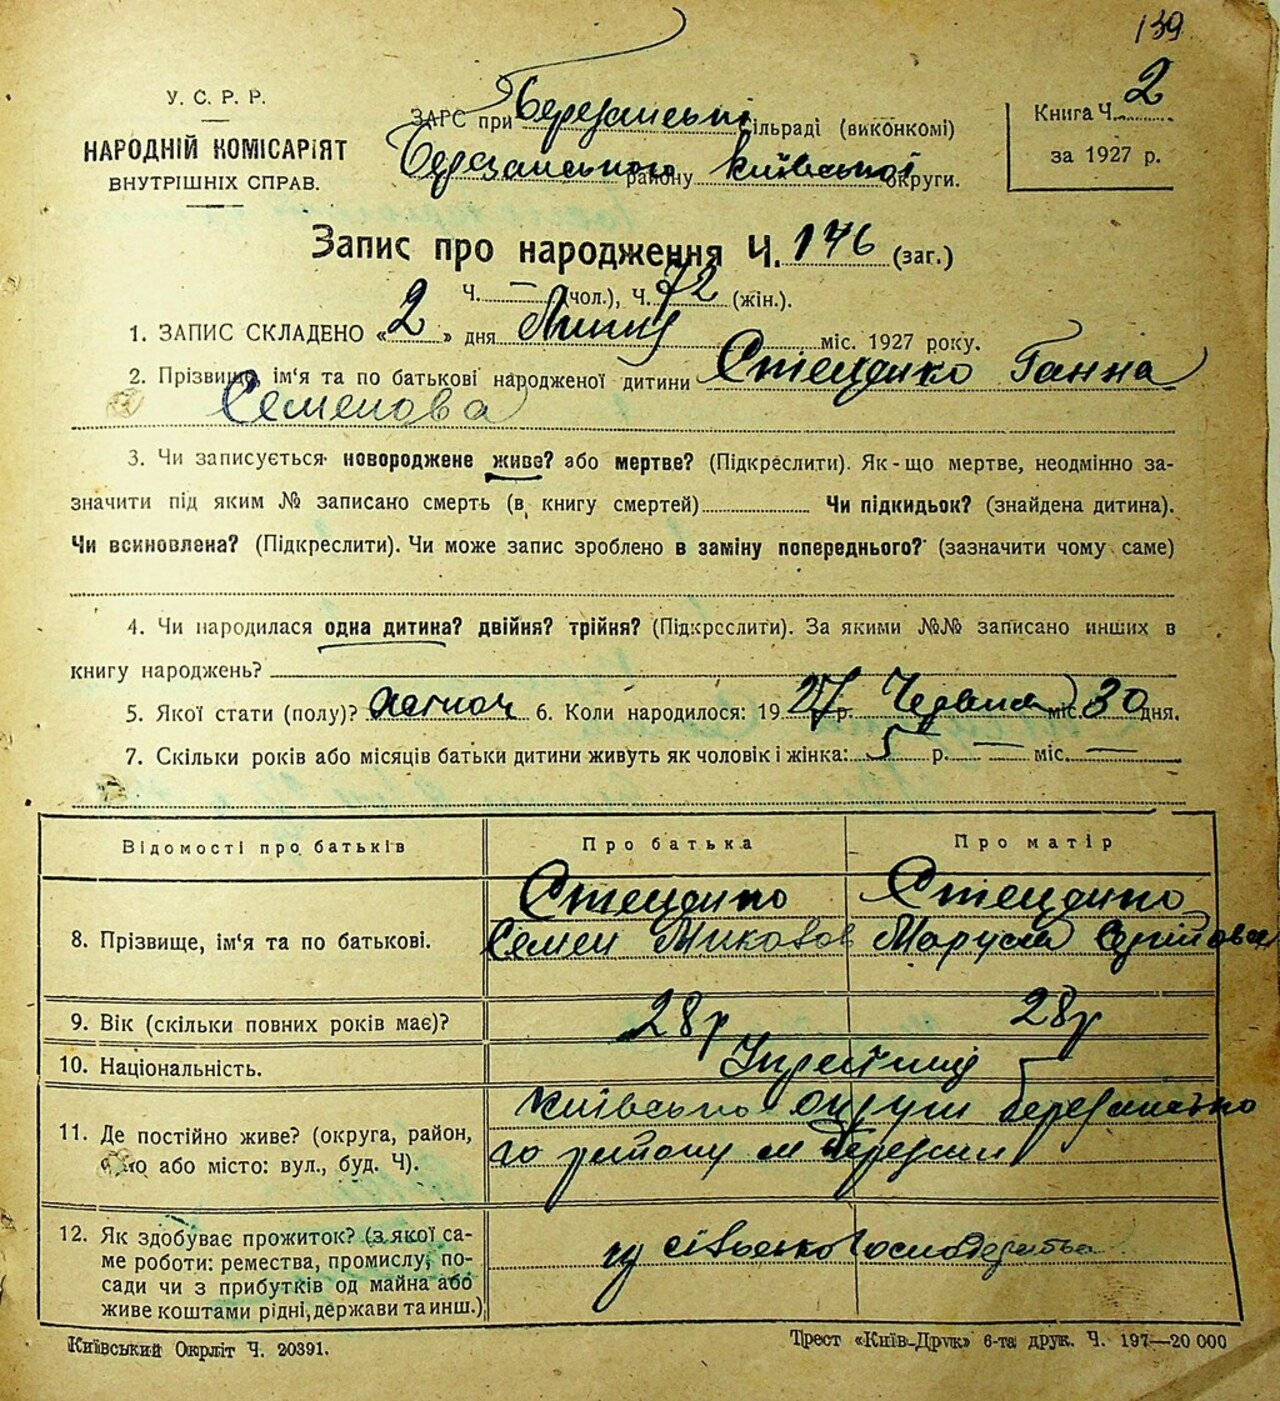 139
У. С. Р. Р.
НАРОДНІЙ КОМІСАРІЯТ
ВНУТРІШНІХ СПРАВ.
ЗАГС при Березанські сільраді (виконкомі)
Березанського району Київської округи.
Книга Ч. 2
за 1927 р.
Запис про народження Ч. 176 (заг.)
Ч. — (чол.), Ч. 72 (жін.).
1. ЗАПИС СКЛАДЕНО «2» дня Липня міс. 1927 року.
2. Прізвище ім'я та по батькові народженої дитини Стецико Ганна
Семенова
3. Чи записується новороджене живе? або мертве? (Підкреслити). Як-що мертве, неодмінно за-
значити під яким № записано смерть (в книгу смертей) Чи підкидьок? (знайдена дитина).
Чи всиновлена? (Підкреслити). Чи може запис зроблено в заміну попереднього? (зазначити чому саме)
4. Чи народилася одна дитина? двійня? трійня? (Підкреслити). За якими №№ записано инших в
книгу народжень?
5. Якої стати (полу)? жіноч 6. Коли народилося: 1927 р. Червня міс. 30 дня.
7. Скільки років або місяців батьки дитини живуть як чоловік і жінка: 5 р. — міс. —
Відомості про батьків Про батька Про матір
8. Прізвище, ім'я та по батькові.
Стецико Стецико
Семен Миколов Маруся
9. Вік (скільки повних років має)? 28р 28р
10. Національність.
11. Де постійно живе? (округа, район,
село або місто: вул., буд. Ч).
Київсько округи Березансько
го району м Березани
12. Як здобуває прожиток? (з якої са-
ме роботи: ремества, промислу, по-
сади чи з прибутків од майна або
живе коштами рідні, держави та инш.)
зу сільсько Господарства
Київський Окрліт Ч. 20391.
Трест «Київ-Друк» 6-та друк. Ч. 197—20 000